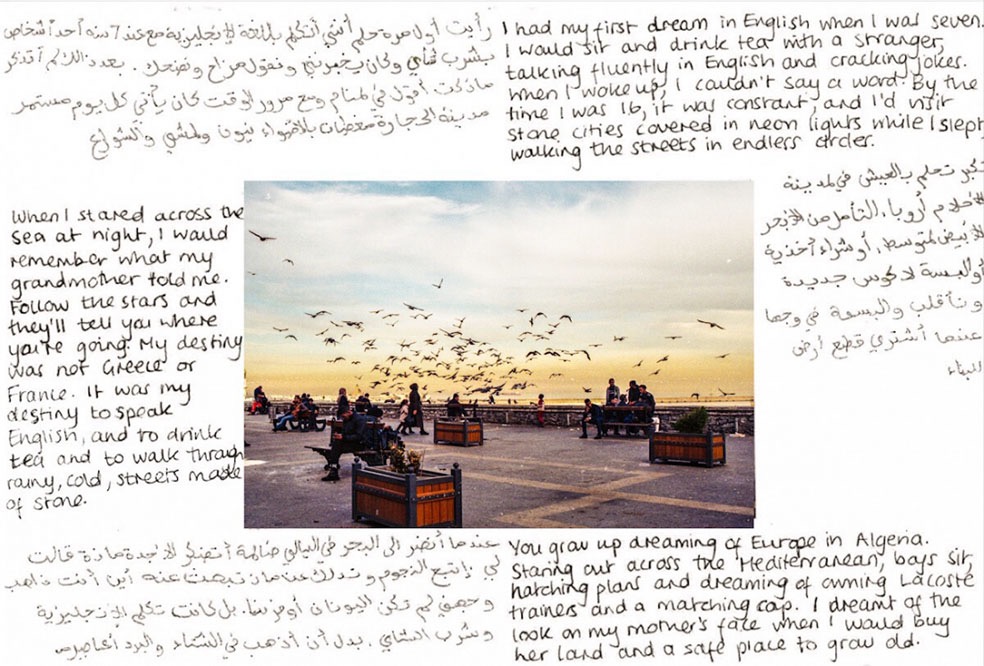 رأيت أول مرة حلم أنني أتكلم باللغة الإنجليزية مع عند 7 سنة أحد أشخاص
بشرب شاي وكان يخبرني ونقول مزاح ونضحك. بعد ذالك لم أتذكر
ماذا كنت أقول في المنام ومع مرور الوقت كان يأتي كل يوم مستمر
مدينة الحجارة مغطات بالأضواء نيون والمشي والشوارع
I had my first dream in English when I was seven.
I would sit and drink tea with a stranger,
talking fluently in English and cracking jokes.
When I woke up, I couldn't say a word. By the
time I was 16, it was constant, and I'd visit
stone cities covered in neon lights while I slept,
walking the streets in endless circles.
When I stared across the
sea at night, I would
remember what my
grandmother told me.
Follow the stars and
they'll tell you where
you're going. My destiny
was not Greece or
France. It was my
destiny to speak
English, and to drink
tea and to walk through
rainy, cold, streets made
of stone.
تكبر تحلم بالعيش في مدينة
الأحلام أروبا، التأمل من الأبحر
الأبيض المتوسط، أو شراء أحذية
أو ألبسة لاكوس جديدة
والبسمة في وجها
عندما أشتري قطع أرض
للبناء
عندما أنضر الى البحر في اليالي أتضكر الاجدة ماذة قالت
لي إتبع النجوم وتدلك عن ماذ تبحت عنه أين أنت ذاهب
وجهتي لم تكن اليونان أو فرنسا. بل كانت تكلم الإنجليزية
وشرب الشاي. بدل أن أذهب في الشتاء والبرد
You grow up dreaming of Europe in Algeria.
Staring out across the Mediterranean, boys sit,
hatching plans and dreaming of owning Lacoste
trainers and a matching cap. I dreamt of the
look on my mother's face when I would buy
her land and a safe place to grow old.